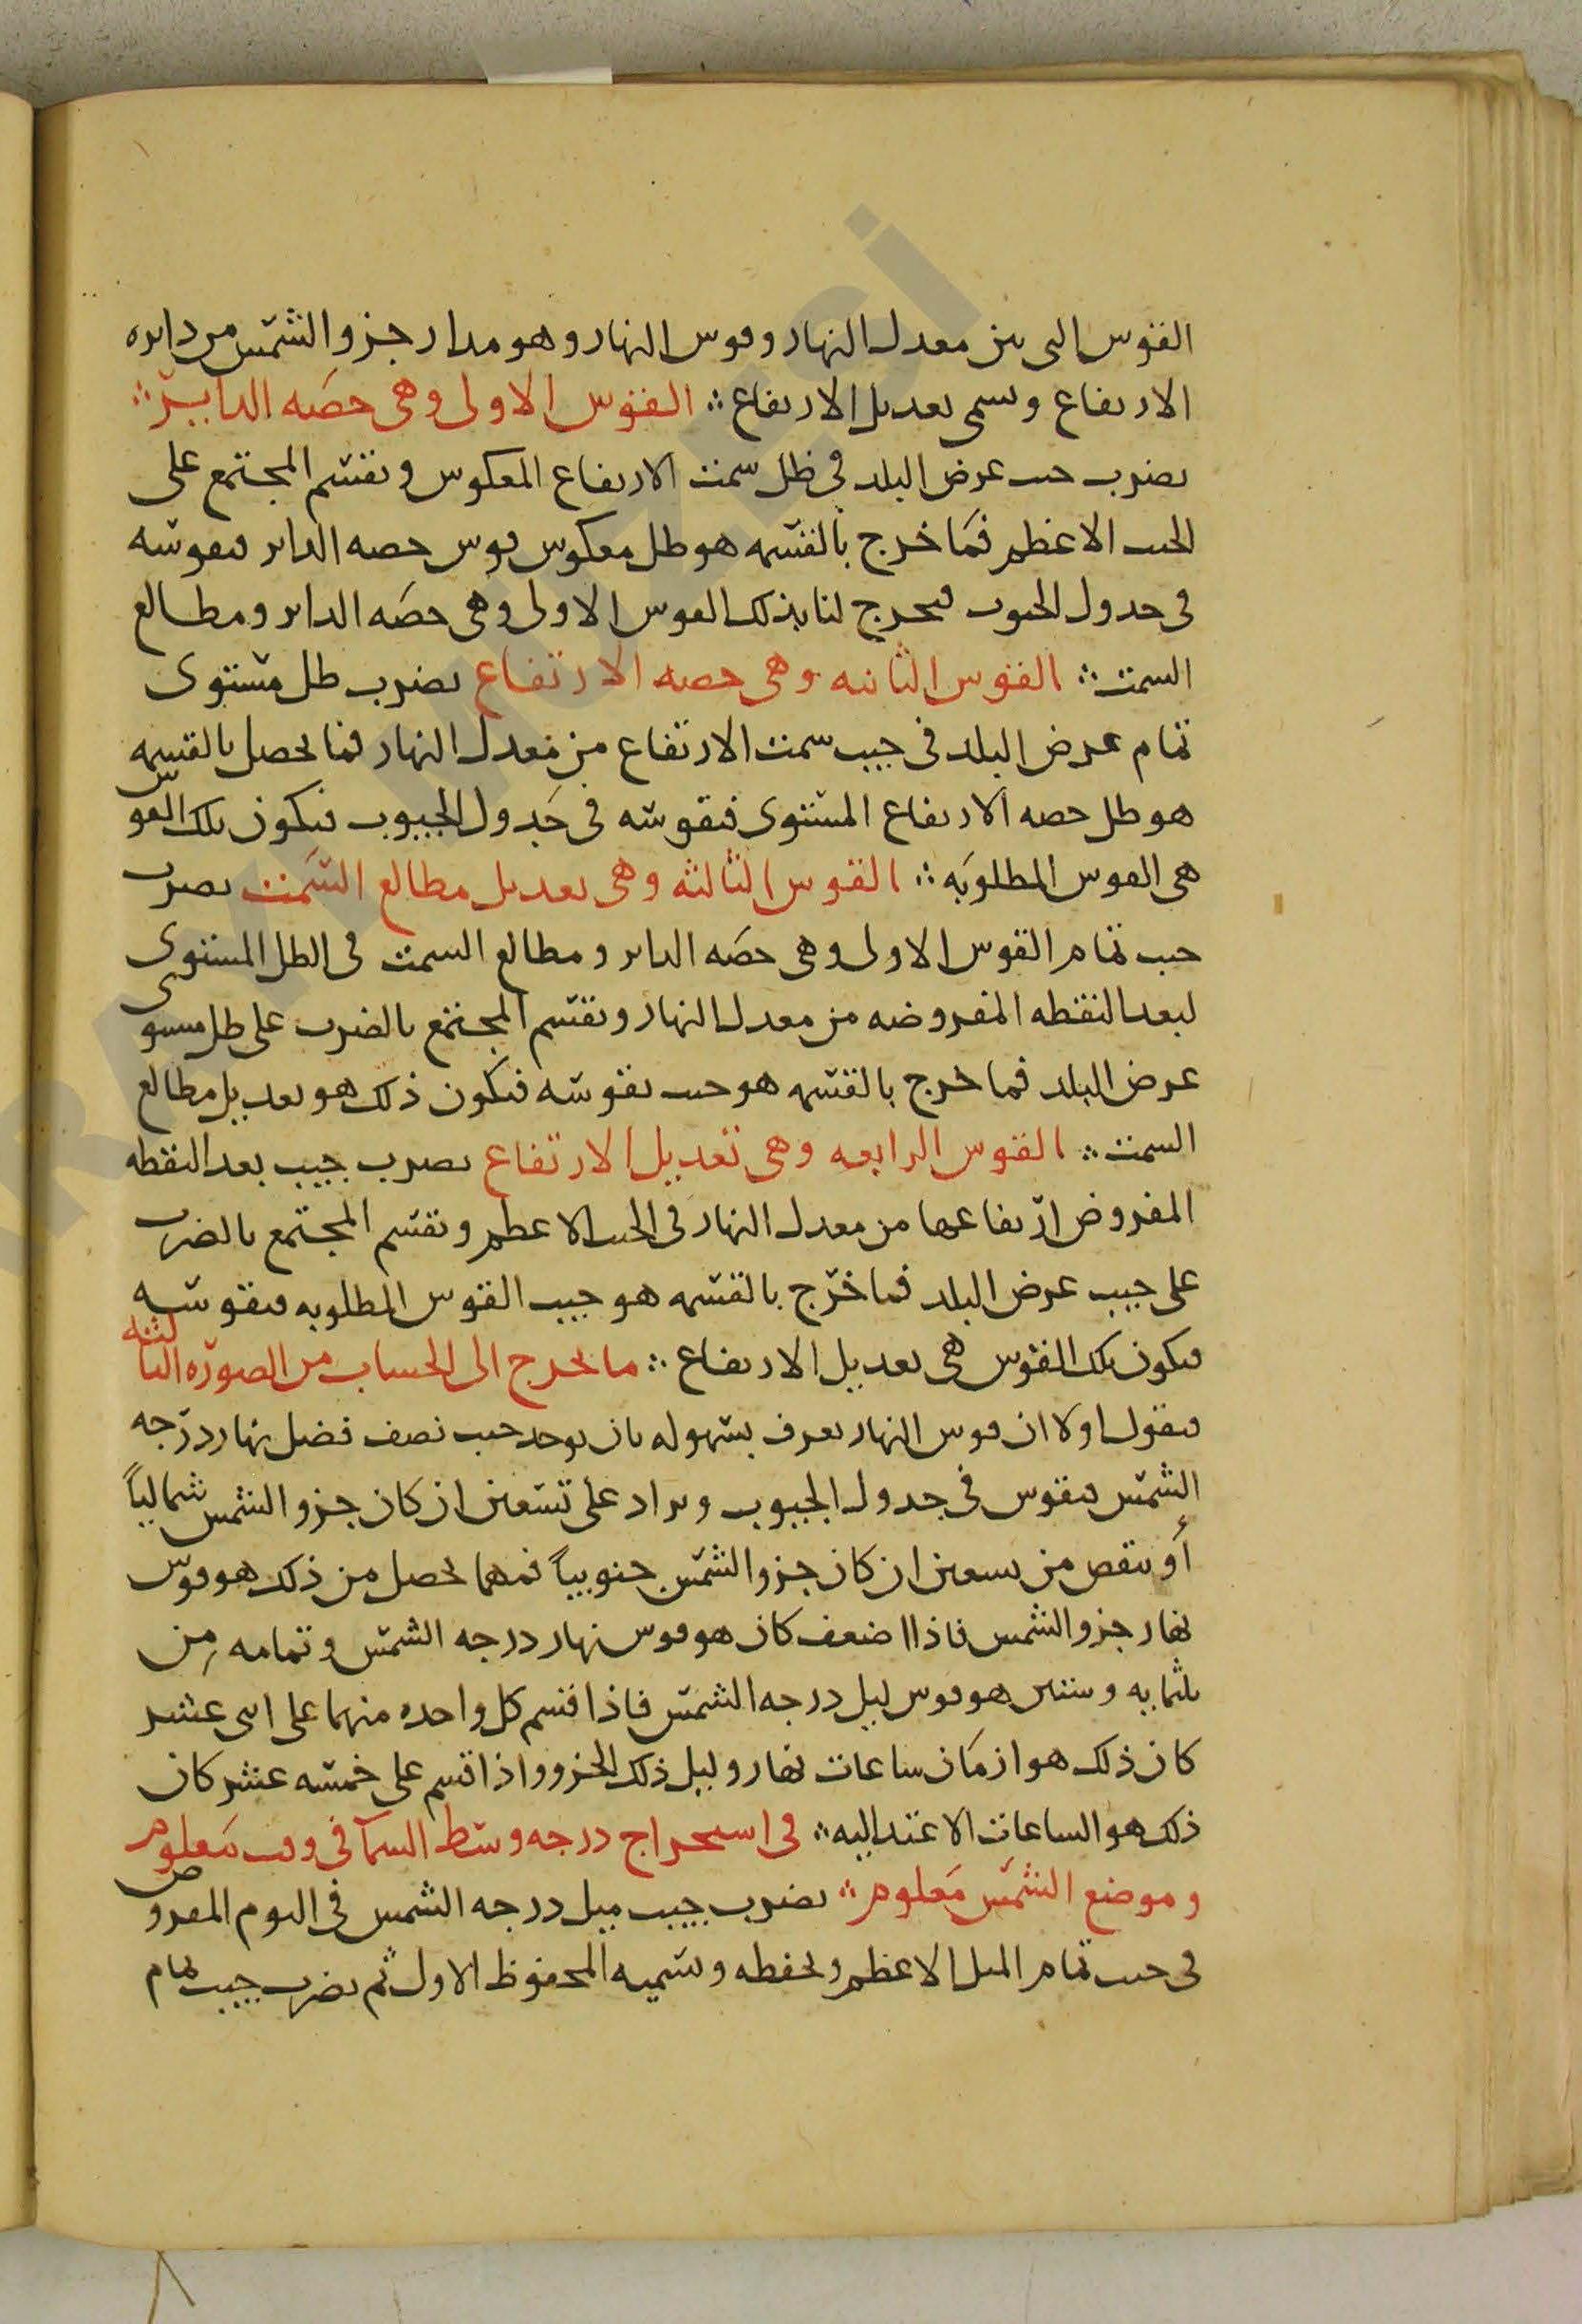 القوس التي بين معدل النهار وقوس النهار وهو مدار جزو الشمس من دايره
الارتفاع وتسمى تعديل الارتفاع ؞ القوس الاولى وهى حصه الداير ؞
نضرب جيب عرض البلد في ظل سمت الارتفاع المعكوس ونقسم المجتمع على
الجيب الاعظم فما خرج بالقسمه هو ظل معكوس قوس حصه الداير فنقوسه
في جدول الجيوب فيخرج لنا بذلك القوس الاولى وهى حصه الداير ومطالع
السمت ؞ القوس الثانيه وهى حصه الارتفاع نضرب ظل مستوى
تمام عرض البلد في جيب سمت الارتفاع من معدل النهار فما يحصل بالقسمه
هو ظل حصه الارتفاع المستوى فنقوسه في جدول الجيوب فيكون تلك القوس
هى القوس المطلوبه ؞ القوس الثالثه وهى تعديل مطالع السمت نضرب
جيب تمام القوس الاولى وهى حصه الداير ومطالع السمت في الظل المستوى
لبعد النقطه المفروضه من معدل النهار ونقسم المجتمع بالضرب على ظل مستوى
عرض البلد فما خرج بالقسمه هو جيب نقوسه فيكون ذلك هو تعديل مطالع
السمت ؞ القوس الرابعه وهى تعديل الارتفاع نضرب جيب بعد النقطه
المفروض ارتفاعها من معدل النهار في الجيب الاعظم ونقسم المجتمع بالضرب
على جيب عرض البلد فما خرج بالقسمه هو جيب القوس المطلوبه فنقوسه
فيكون تلك القوس هى تعديل الارتفاع ؞ ما نخرج الى الحساب من الصوره الثالثه
فنقول اولا ان قوس النهار تعرف بسهوله بان يوخد جيب نصف فضل نهار درجه
الشمس فيقوس في جدول الجيوب ويزاد على تسعين ان كان جزو الشمس شمالياً
أو ينقص من تسعين ان كان جزو الشمس جنوبياً فمهما يحصل من ذلك هو قوس
نهار جزو الشمس فاذا اضعف كان هو قوس نهار درجه الشمس وتمامه من
ثلثمايه وستين هو قوس ليل درجه الشمس فاذا قسم كل واحده منهما على اثنى عشر
كان ذلك هو ازمان ساعات نهار وليل ذلك الجزو واذا قسم على خمسه عشر كان
ذلك هو الساعات الاعتداليه ؞ في استخراج درجه وسط السمآ في وقت معلوم
وموضع الشمس معلوم ؞ نضرب جيب ميل درجه الشمس في اليوم المفروض
في جيب تمام الميل الاعظم ونحفظه ونسميه المحفوظ الاول ثم نضرب جيب تمام